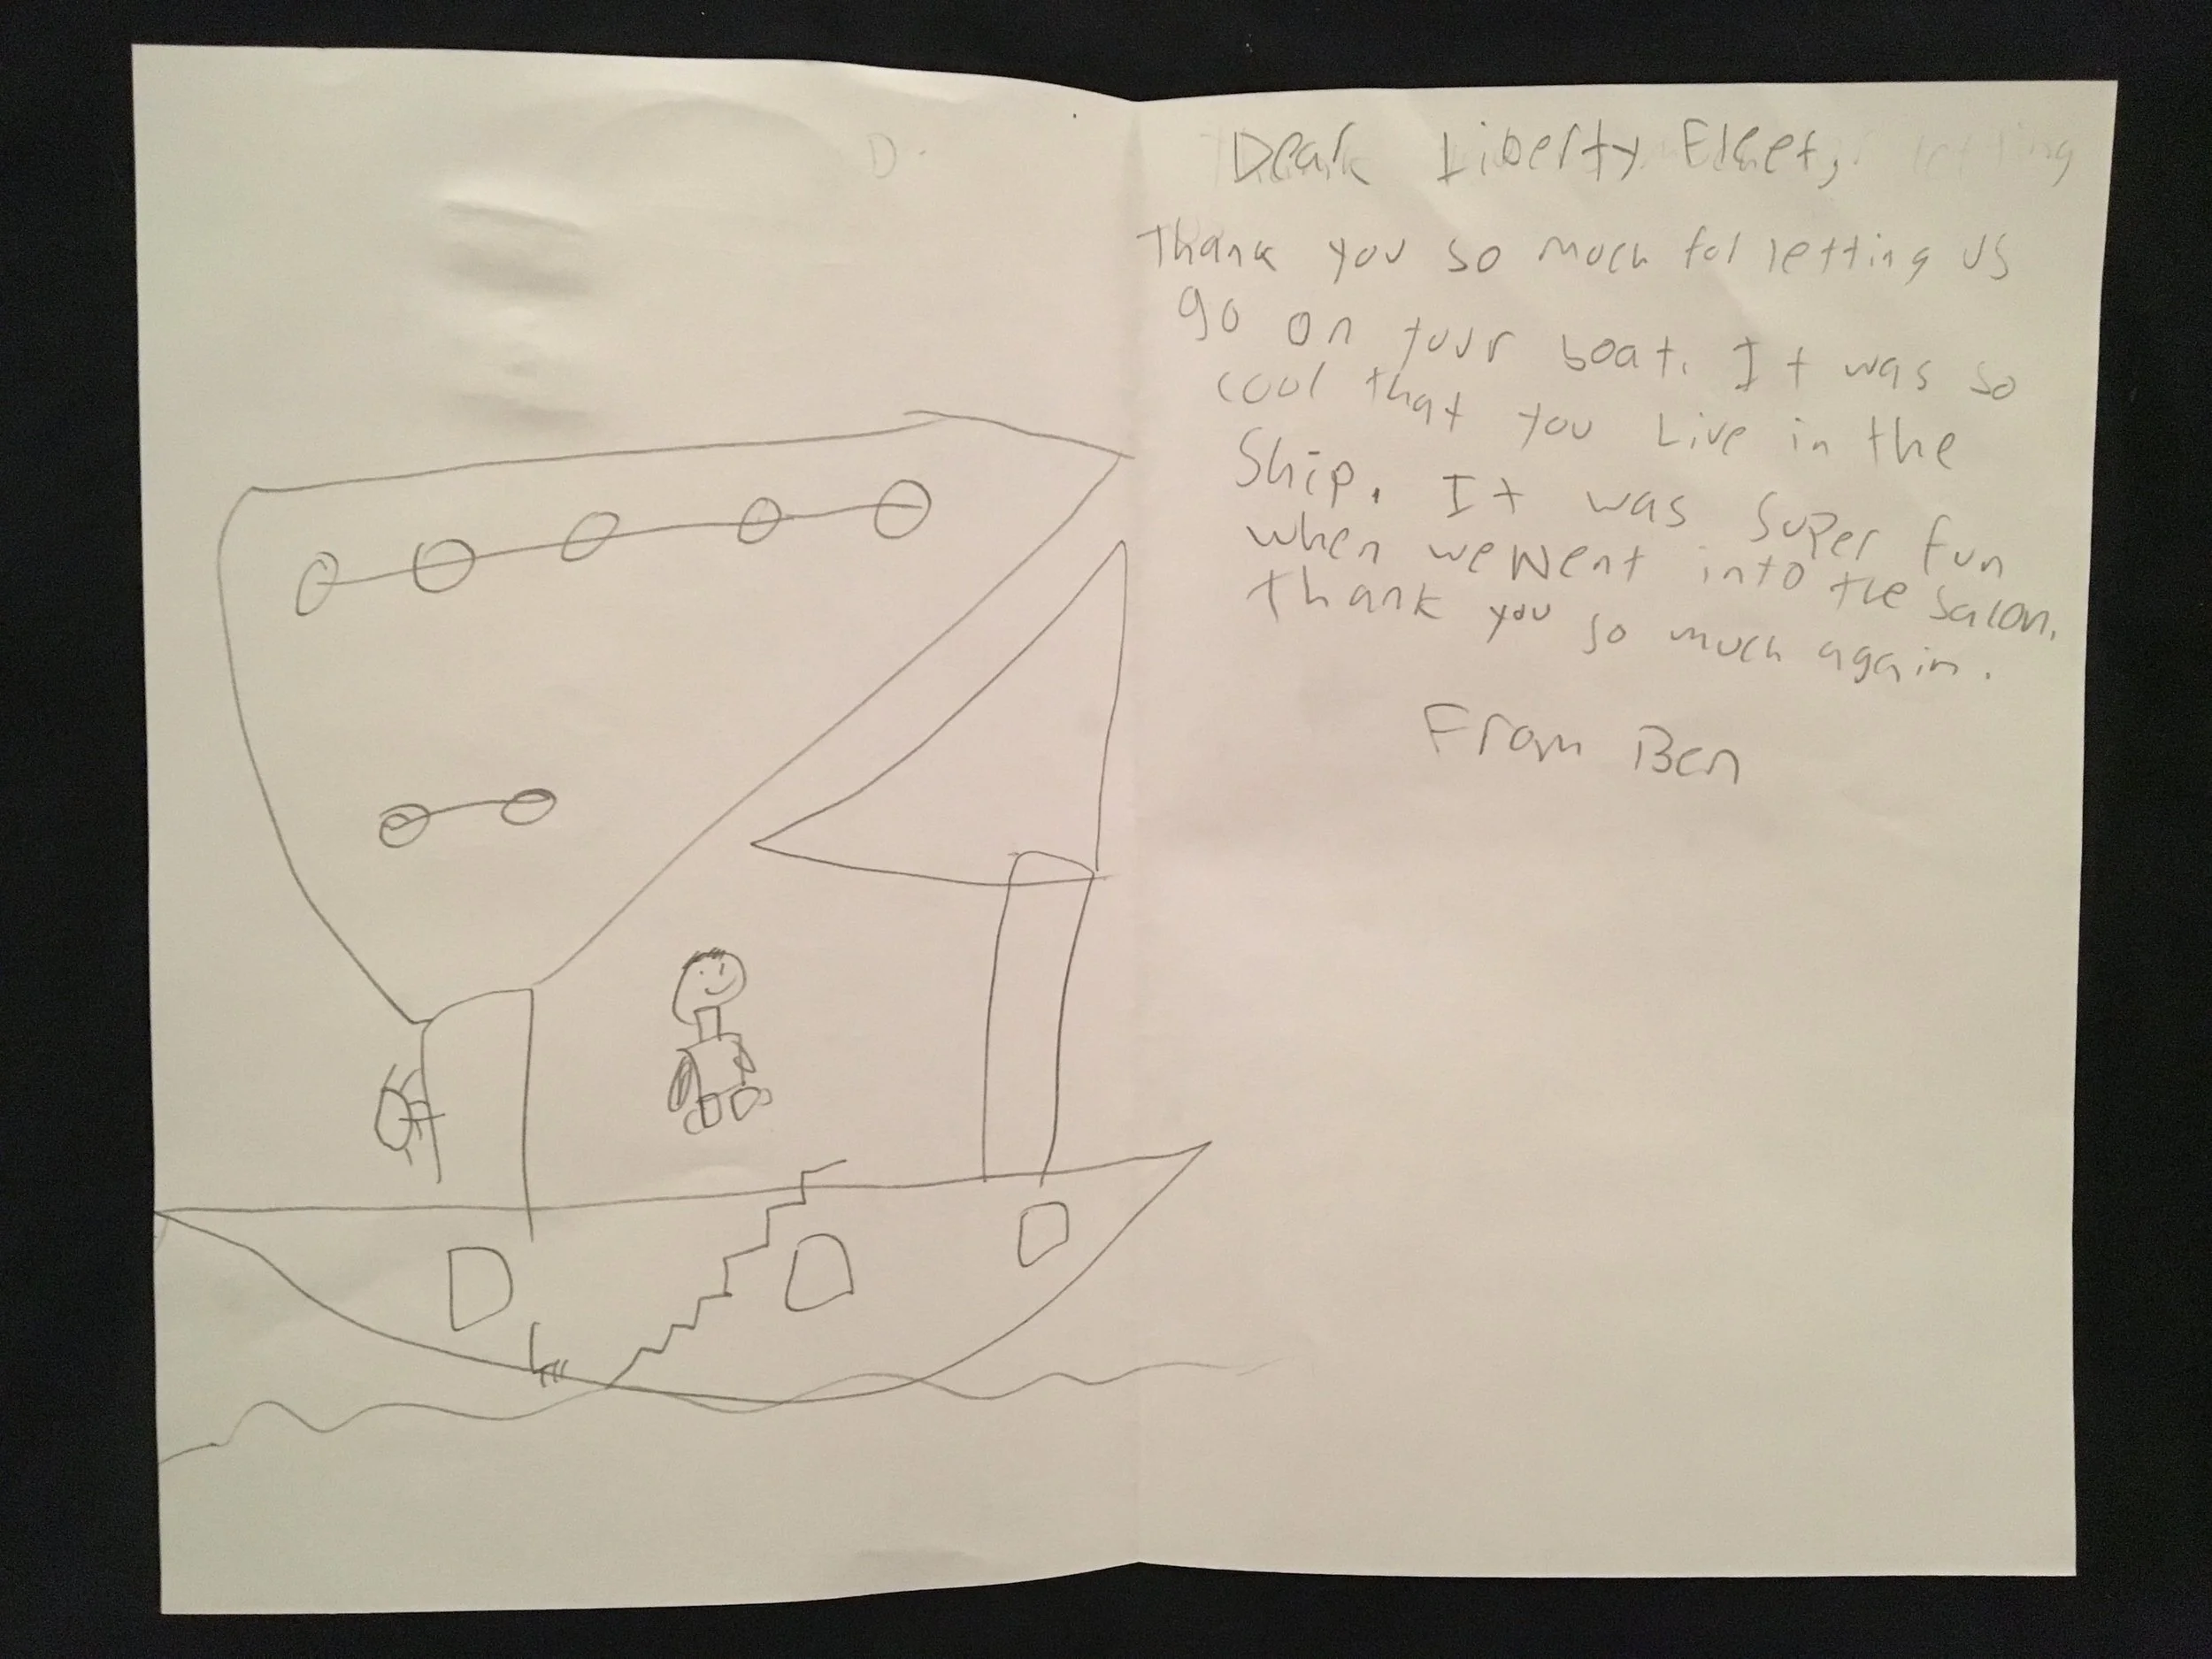 Dear Liberty Fleet,
Thank you so much for letting us
go on your boat. It was so
cool that you Live in the
Ship. It was super fun
when we went into the salon.
thank you so much again.
From Ben